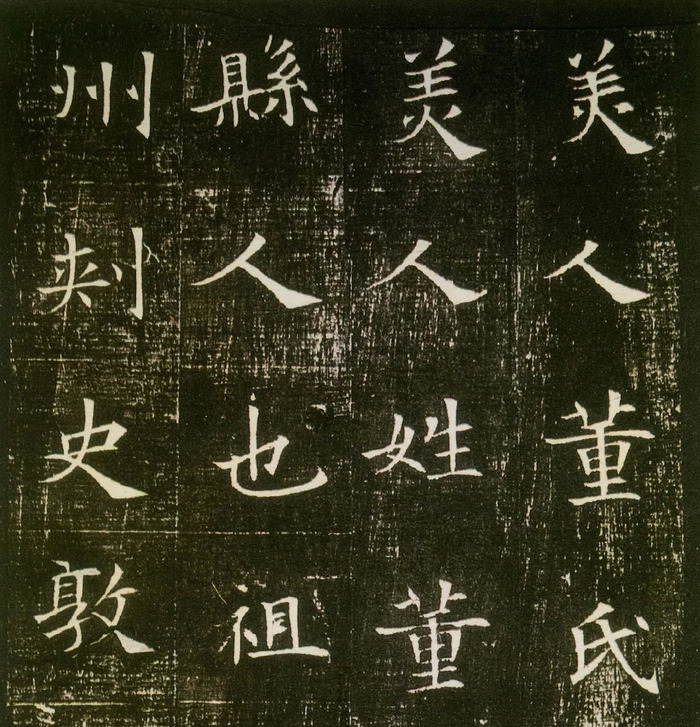 美人董氏
美人姓董
縣人也祖
州刺史敦